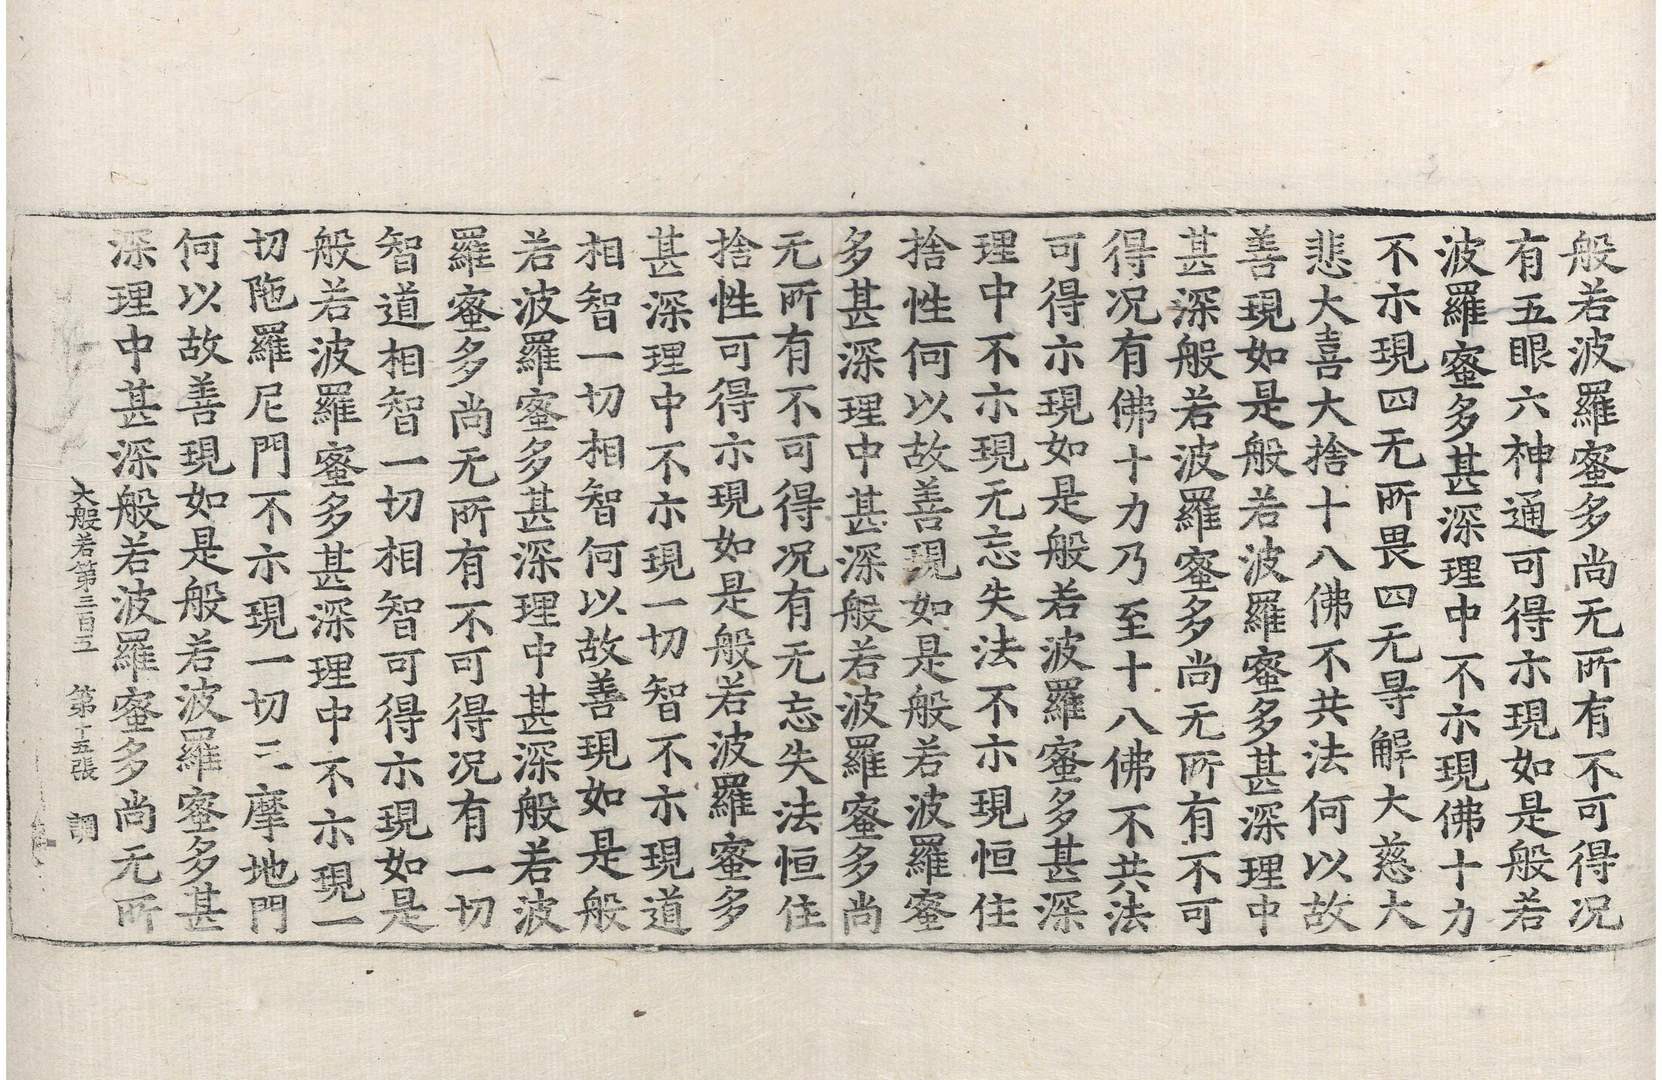 般若波羅蜜多尚无所有不可得况
有五眼六神通可得示現如是般若
波羅蜜多甚深理中不示現佛十力
不示現四无所畏四无㝵解大慈大
悲大喜大捨十八佛不共法何以故
善現如是般若波羅蜜多甚深理中
甚深般若波羅蜜多尚无所有不可
得况有佛十力乃至十八佛不共法
可得示現如是般若波羅蜜多甚深
理中不示現无忘失法不示現恒住
捨性何以故善現如是般若波羅蜜
多甚深理中甚深般若波羅蜜多尚
无所有不可得况有无忘失法恒住
捨性可得示現如是般若波羅蜜多
甚深理中不示現一切智不示現道
相智一切相智何以故善現如是般
若波羅蜜多甚深理中甚深般若波
羅蜜多尚无所有不可得况有一切
智道相智一切相智可得示現如是
般若波羅蜜多甚深理中不示現一
切陁羅尼門不示現一切三摩地門
何以故善現如是般若波羅蜜多甚
深理中甚深般若波羅蜜多尚无所
大般若第三百五 第十五張 調